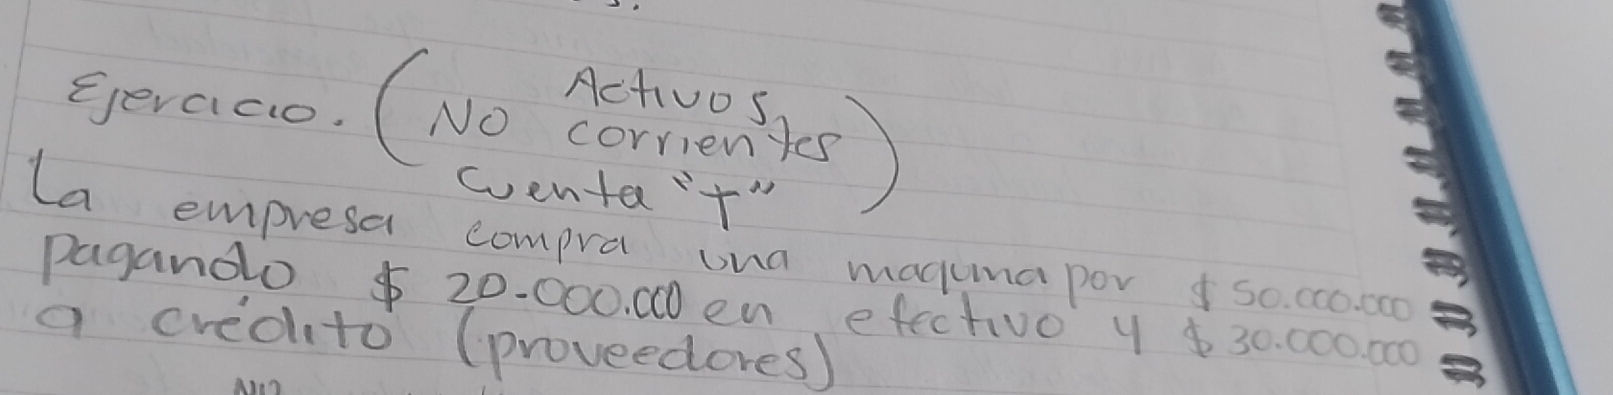 Ejercicio. (Activos
NO corrientes)
cuenta "T"
La empresa compra una maquina por $ 50.000.000
pagando $ 20.000.000 en efectivo y $ 30.000.000
a crédito (proveedores)